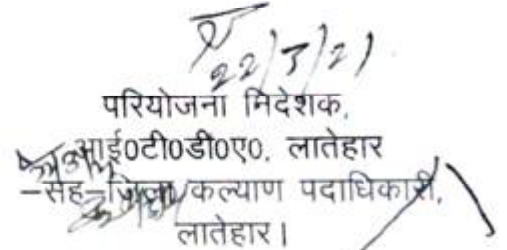 22/3/21
परियोजना निदेशक,
आई०टी०डी०ए०, लातेहार
-सह-जिला कल्याण पदाधिकारी,
लातेहार।